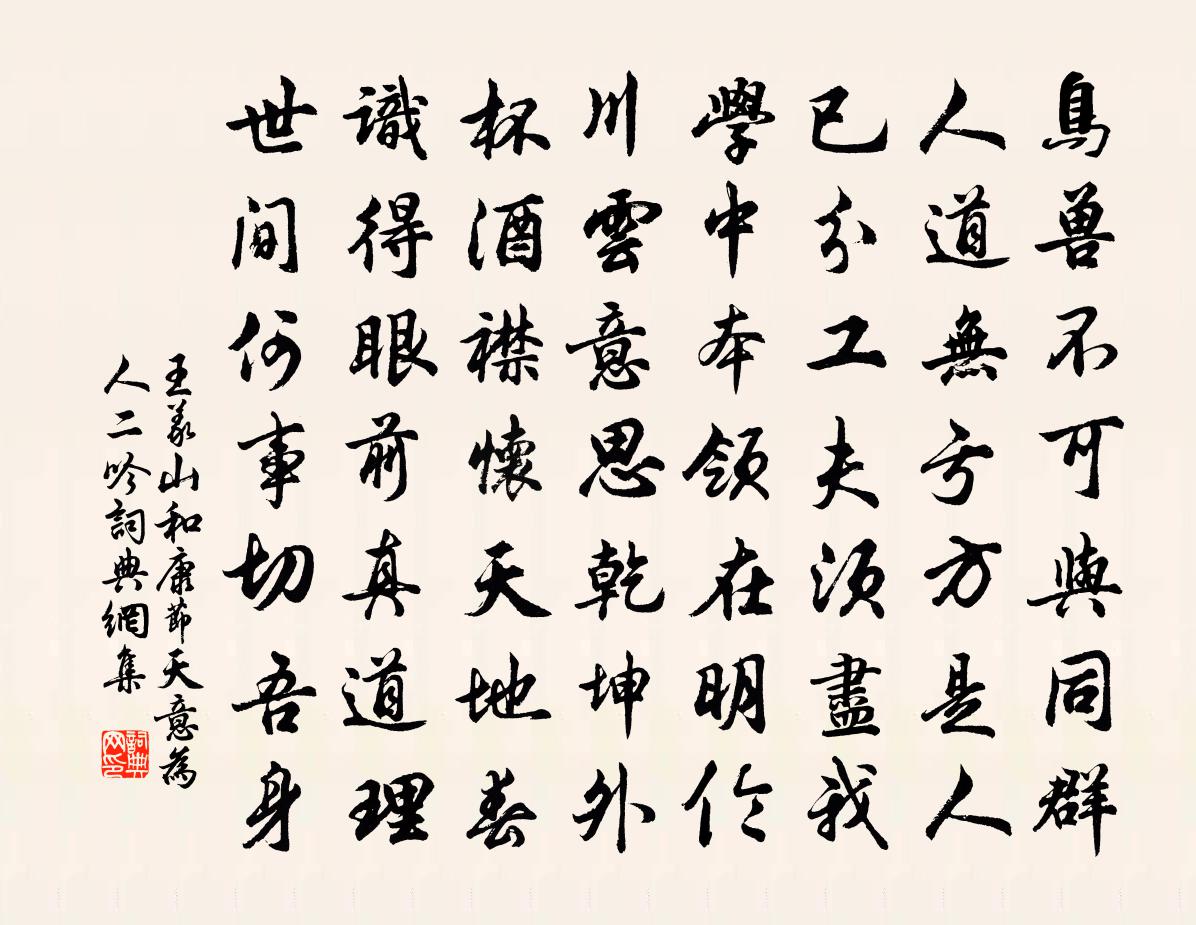 鳥兽不可與同群
人道無亏方是人
已分工夫須盡我
學中本領在明伦
川雲意思乾坤外
杯酒襟懷天地春
識得眼前真道理
世间何事切吾身
王義山和康節天意為
人二吟詞典網集
詞典
网印